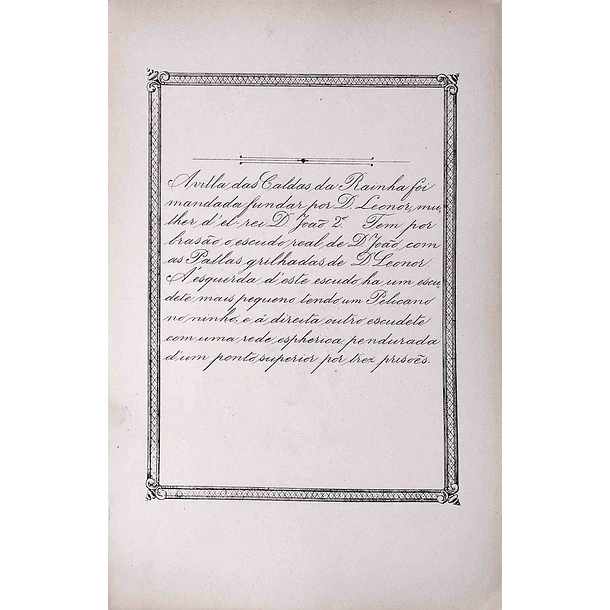 A villa das Caldas da Rainha foi
mandada fundar por D. Leonor, mu-
lher d'el rei D. João 2º. Tem por
brasão o escudo real de D. João, com
as Pallas grilhadas de D. Leonor.
A' esquerda d'este escudo ha um escu-
dete mais pequeno tendo um Pelicano
no ninho, e á direita outro escudete
com uma rede espherica pendurada
d'um ponto superior por trez prisões.